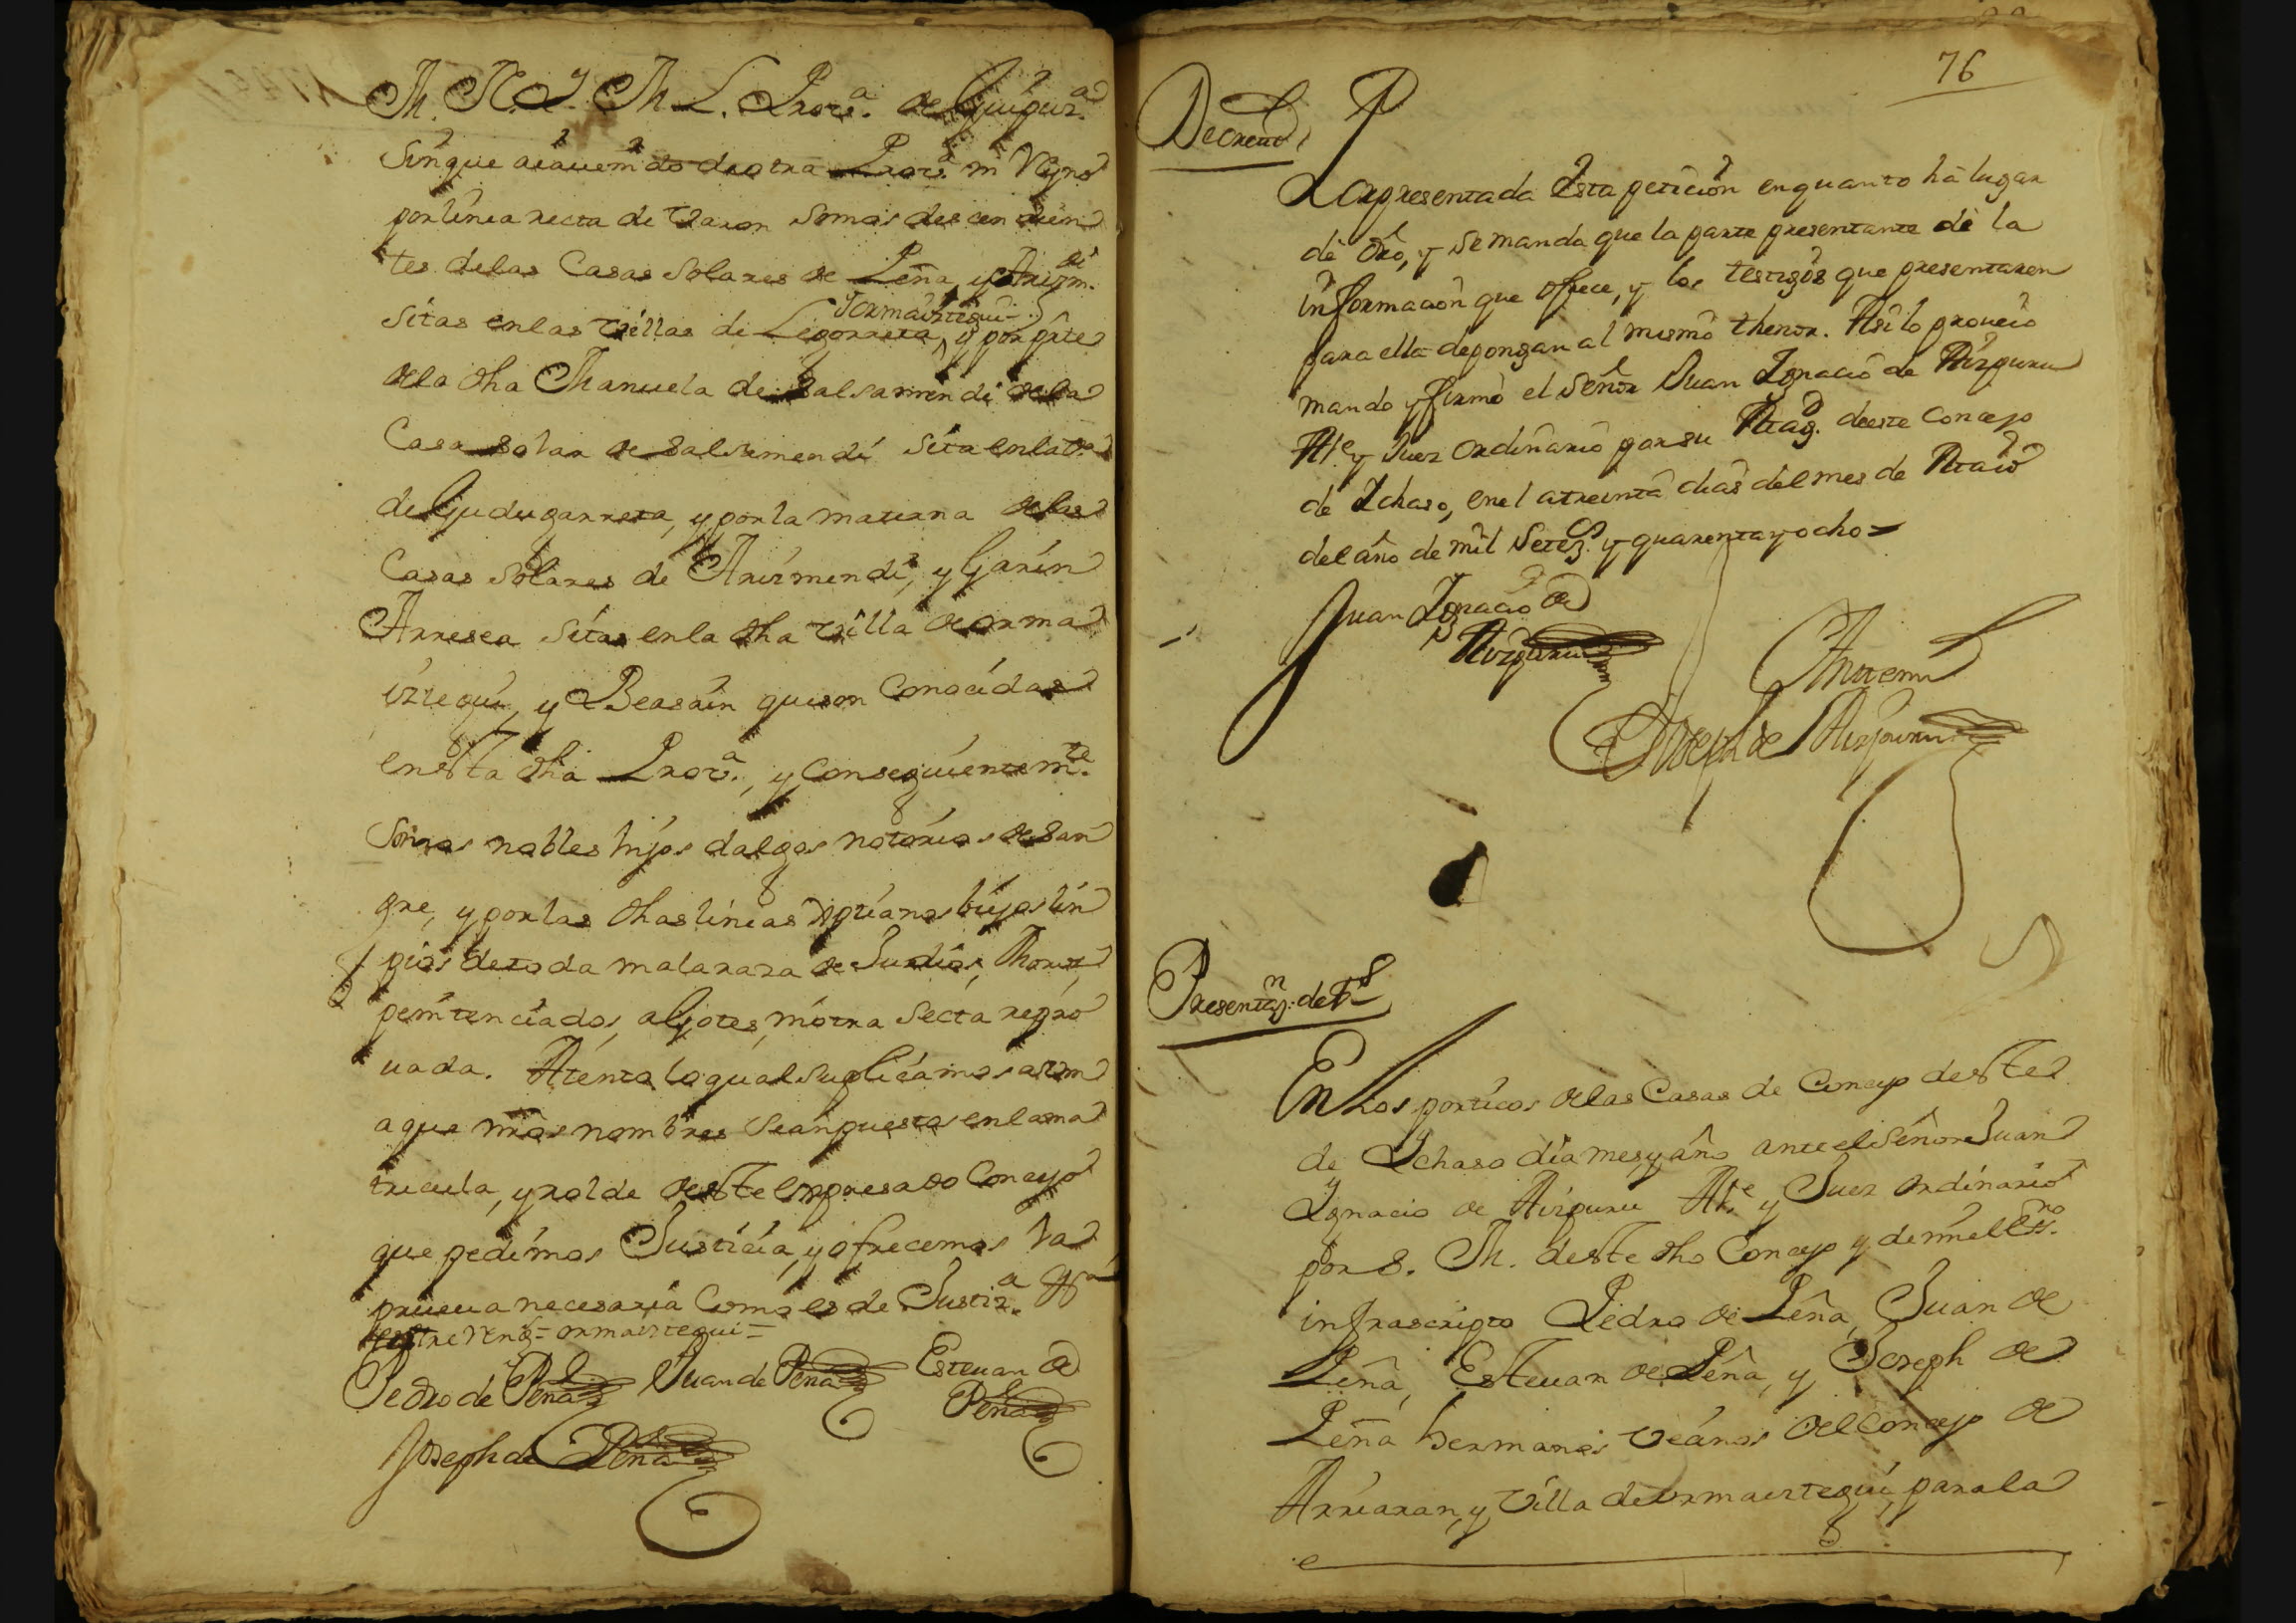 M. N. y M. L. Prov.ª de Guipuz.ª
sin que aiauenido de otra Prov.ª ni Reyno
por linea recta de varon somos descendien
tes delas Casas Solares de Peña, y Arizm.di
Ormaiztegui
sitas enlas villas de Legorreta, y por pãte
dela dha Manuela de Salsamendi dela
Casa solar de Salsamendi sita enla v.ª
de Gudugarreta, y por la materna delas
Casas Solares de Arizmendi, y Garin
Arresea sitas enla dha villa de orma
iztegui, y Beasáin que son Conocidas
en esta dha Prov.ª, y consequientem.te
somos nobles hijos dalgos notorios de san
gre, y por las dhas lineas xptianos biejos lin
pios de toda mala raza de Judios, Moros,
penitenciados, agotes, ni otra secta repro
uada. Atento lo qual suplicamos a vm
a que nr̃os nombres sean puestos en la ma
tricula, y rolde deeste expresado Concejo
que pedimos Justicia, y ofrecemos la
prueua necesaria Como es de Justiz.ª Ttª
entre reng.s = ormaiztegui =
Pedro de Peña Juan de Peña Esteuan de
Peña
Joseph de Peña
76
Decreto
Por presentada esta peticion en quanto há lugar
dé dr̃o, y se manda que la parte presentante dè la
informacion que ofrece, y los testigos que presentaren
para ella depongan al mismo thenor. Asi lo proueió
mando y firmó el señor Juan Ignacio de Aizpuru
Al.e y Juez ordinario por su Mag.d deeste Concejo
dé Ichaso, en el a treinta dias del mes de Maio
del año de mil Setez.s y quarenta y ocho =
Juan Ignacio de
Aizpuru
Antemi
Joseph de Aizpuru
Presentaz.n de t.s
En los porticos delas Casas de Concejo deeste
de Ychaso dia mes, y año ante el señor Juan
Ygnacio de Aizpuru Al.e y Juez ordinario
por S. M. deeste dho Concejo y demi el Ess.no
infrascripto Pedro de Peña, Juan de
Peña, Esteuan de Peña, y Joseph de
Peña hermanos vecinos del Concejo de
Arriaran, y Villa de ormaiztegui, para la